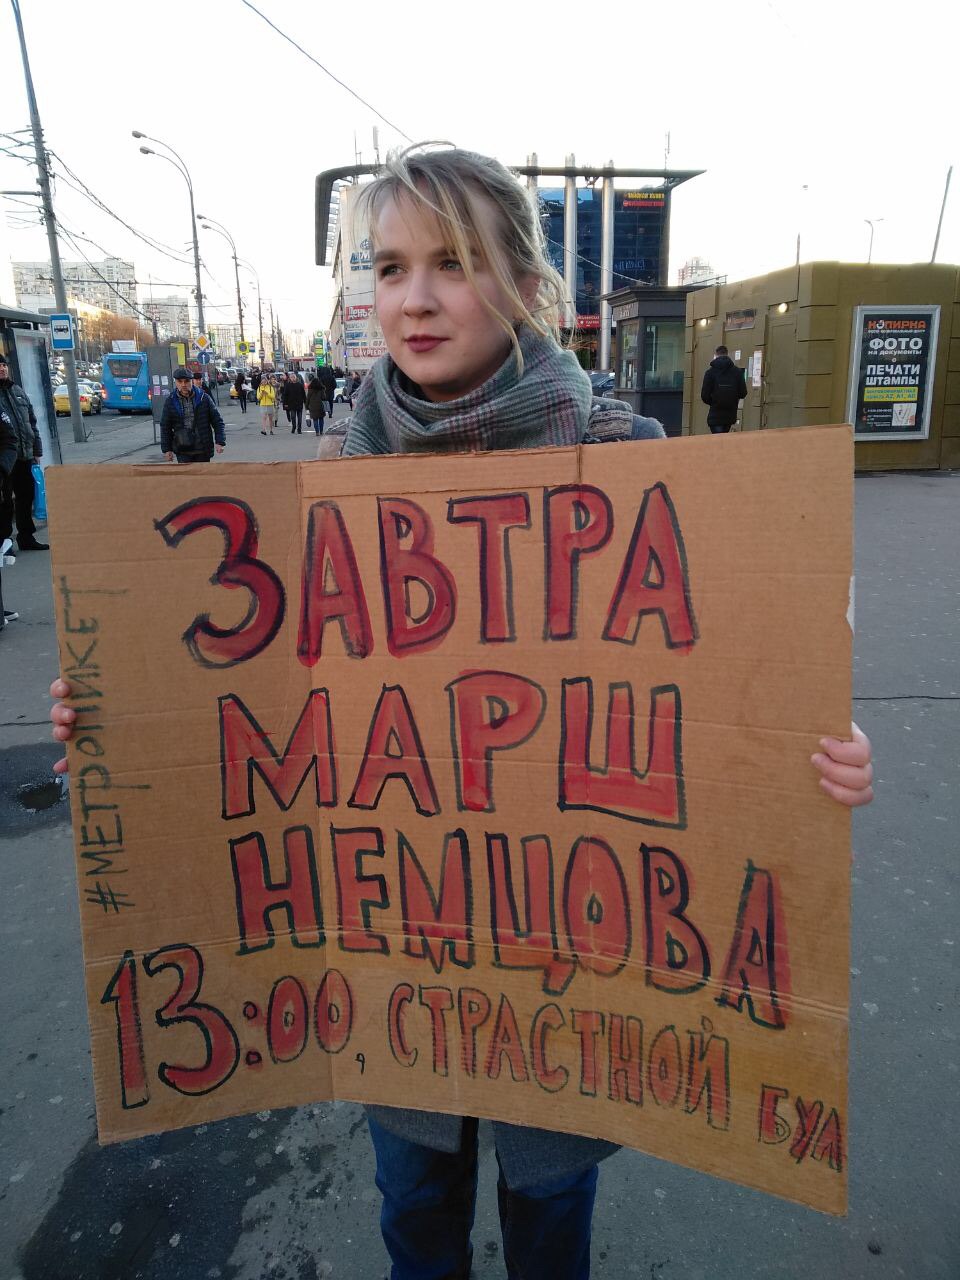 ЗАВТРА
МАРШ
НЕМЦОВА
13:00, СТРАСТНОЙ БУЛ
#МЕТРОПИКЕТ
КОПИРКА
ФОТО
на документы
ПЕЧАТИ
ШТАМПЫ